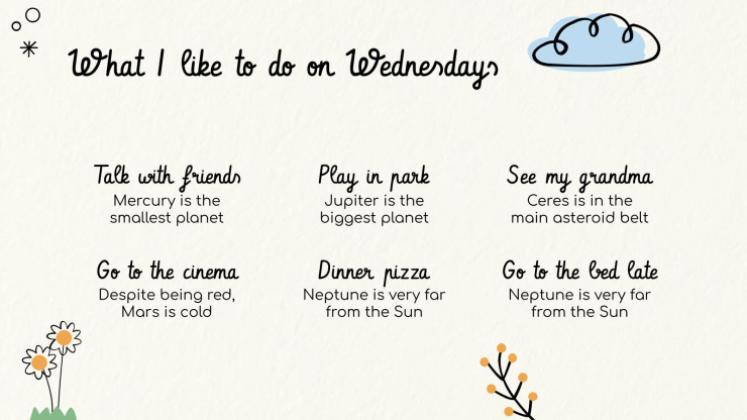 What I like to do on Wednesdays
Talk with friends
Mercury is the
smallest planet
Play in park
Jupiter is the
biggest planet
See my grandma
Ceres is in the
main asteroid belt
Go to the cinema
Despite being red,
Mars is cold
Dinner pizza
Neptune is very far
from the Sun
Go to the bed late
Neptune is very far
from the Sun